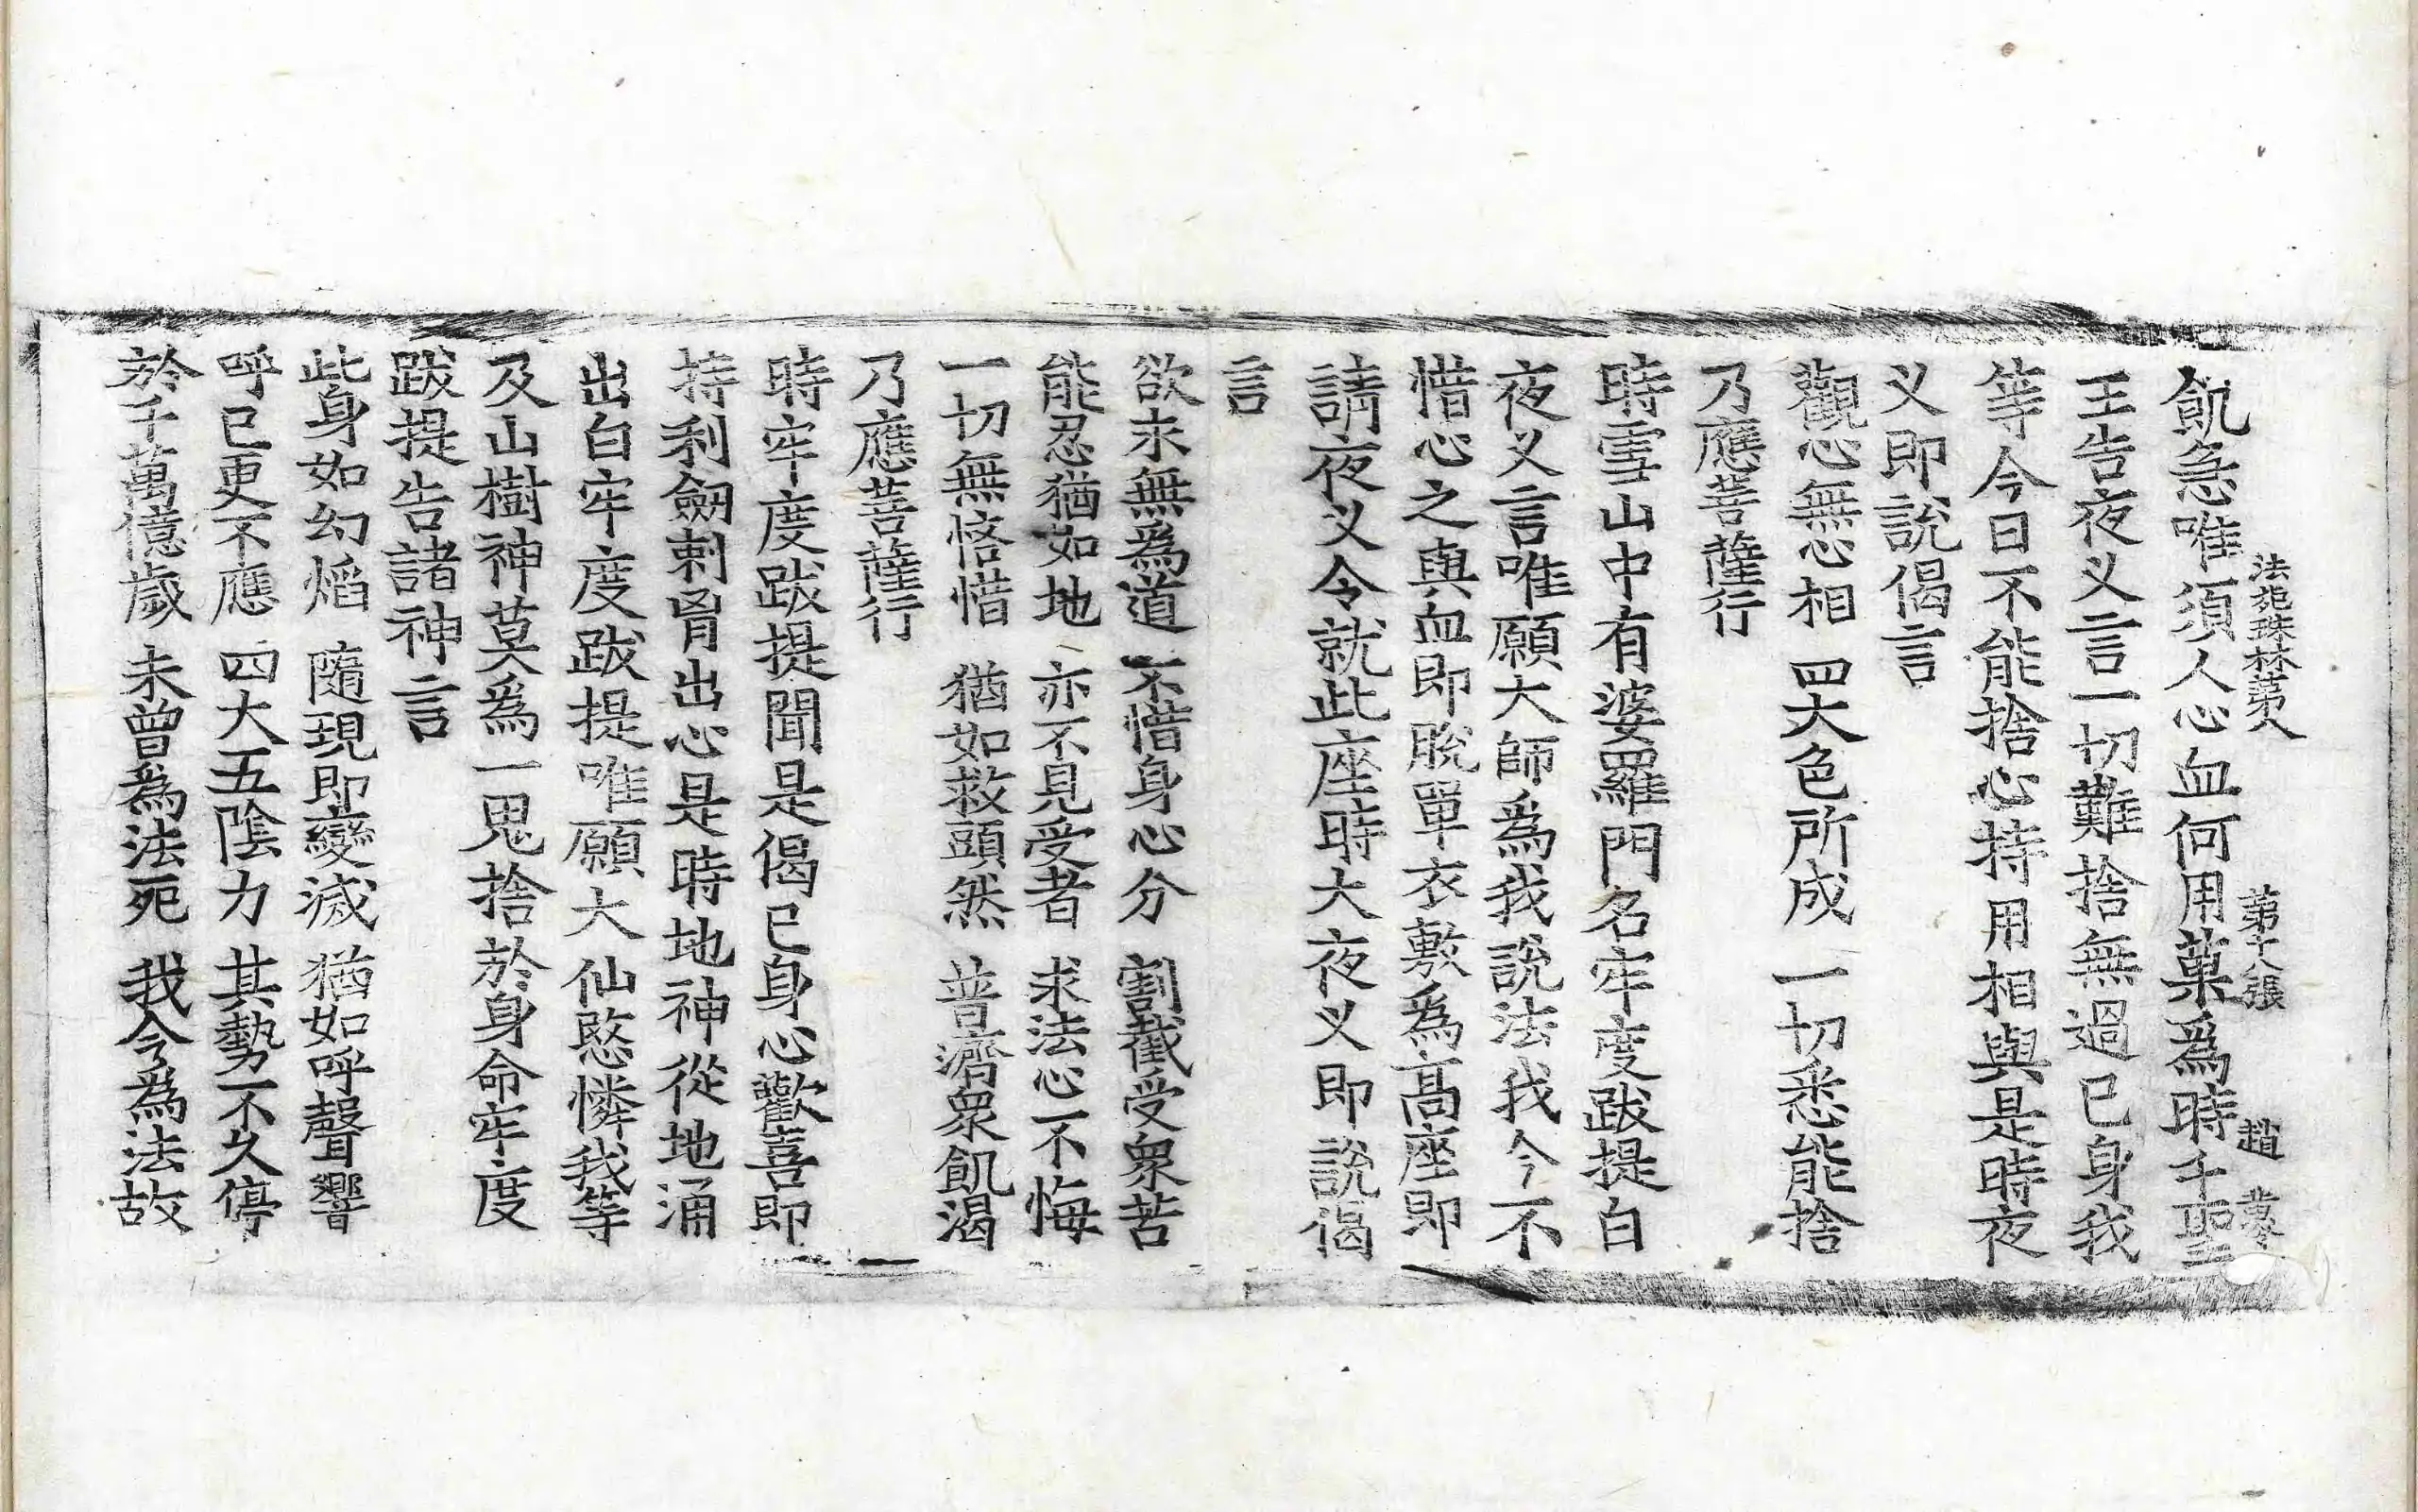 法苑珠林第八　第十八張　趙
飢急唯須人心血何用菓爲時千聖
王告夜义言一切難捨無過已身我
等今日不能捨心持用相與是時夜
义即說偈言
觀心無心相　四大色所成　一切悉能捨
乃應菩薩行
時雪山中有婆羅門名牢度跋提白
夜义言唯願大師爲我說法我今不
惜心之與血即脫單衣敷爲髙座即
請夜义令就此座時大夜义即說偈
言
欲求無爲道　不惜身心分　割截受衆苦
能忍猶如地　亦不見受者　求法心不悔
一切無悋惜　猶如救頭然　普濟衆飢渴
乃應菩薩行
時牢度跋提聞是偈已身心歡喜即
持利劒刺胷出心是時地神從地涌
出白牢度跋提唯願大仙愍憐我等
及山樹神莫爲一鬼捨於身命牢度
跋提告諸神言
此身如幻熖　隨現即變滅　猶如呼聲響
呼已更不應　四大五陰力　其勢不久停
於千萬億歲　未曾爲法死　我今爲法故